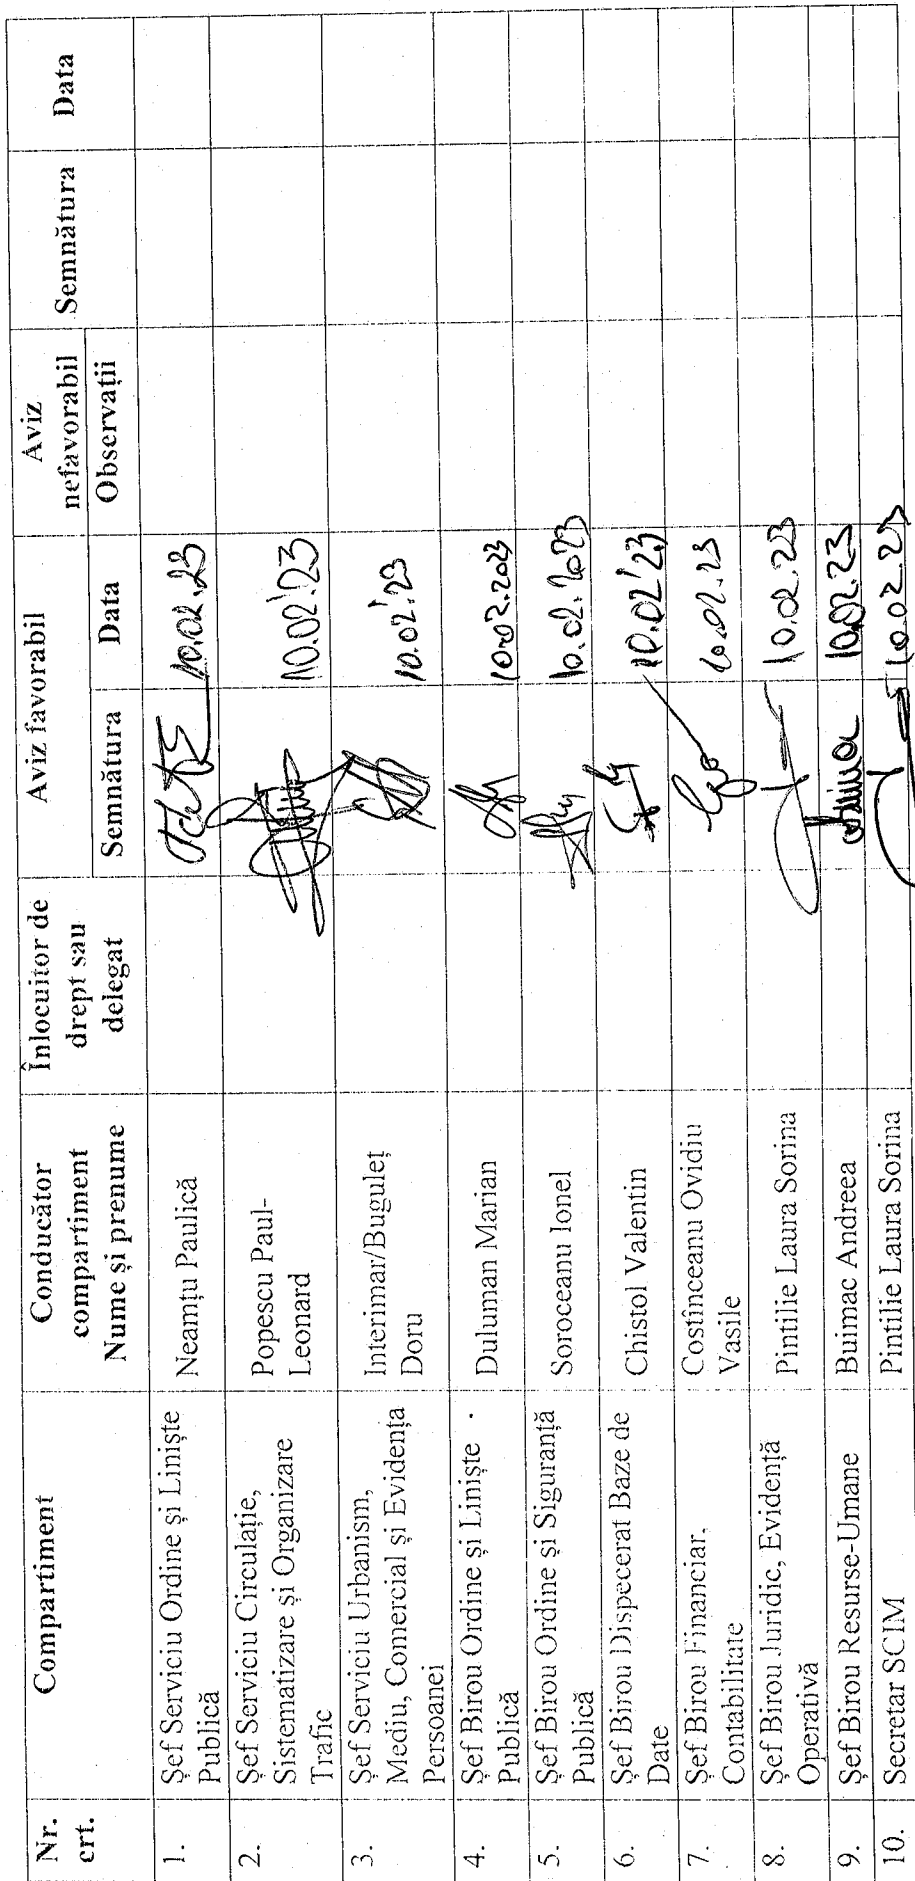 Nr. crt.
Compartiment
Conducător compartiment Nume și prenume
Înlocuitor de drept sau delegat
Aviz favorabil
Aviz nefavorabil
Semnătura
Data
Semnătura
Data
Observații
1.
Șef Serviciu Ordine și Liniște
Publică
Neamțu Paulică
10.02.23
2.
Șef Serviciu Circulație,
Sistematizare și Organizare
Trafic
Popescu Paul-
Leonard
10.02'23
3.
Șef Serviciu Urbanism,
Mediu, Comercial și Evidența
Persoanei
Interimar/Buguleț
Doru
10.02'.23
4.
Șef Birou Ordine și Liniște
Publică
Duluman Marian
10.02.2023
5.
Șef Birou Ordine și Siguranță
Publică
Soroceanu Ionel
10.02.2023
6.
Șef Birou Dispecerat Baze de
Date
Chistol Valentin
10.02'23
7.
Șef Birou Financiar,
Contabilitate
Costînceanu Ovidiu
Vasile
10.02.23
8.
Șef Birou Juridic, Evidență
Operativă
Pintilie Laura Sorina
10.02.23
9.
Șef Birou Resurse-Umane
Buimac Andreea
10.02.23
10.
Secretar SCIM
Pintilie Laura Sorina
10.02.23